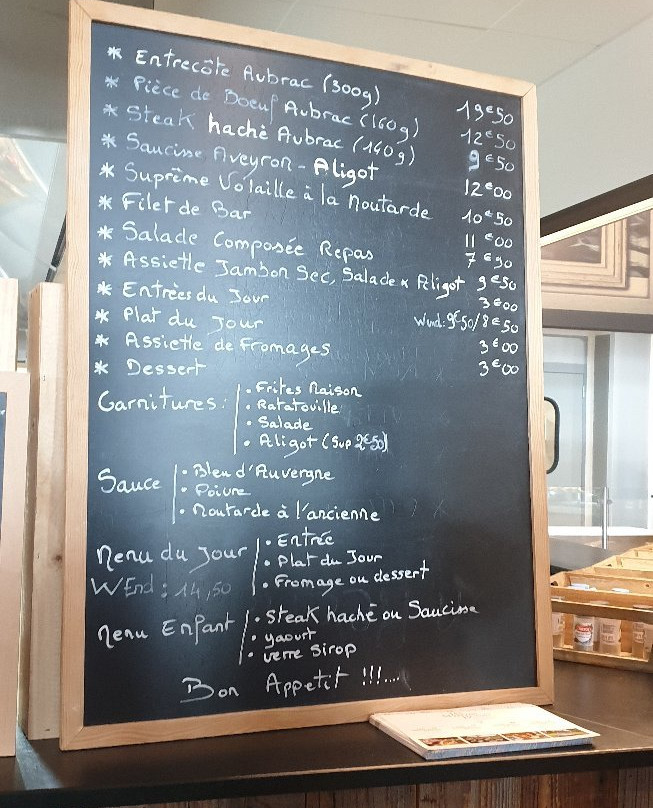 * Entrecôte Aubrac (300g) 19€50
* Pièce de Boeuf Aubrac (160g) 12€50
* Steak haché Aubrac (140g) 9€50
* Saucisse Aveyron - Aligot 12€00
* Suprême Volaille à la Moutarde 10€50
* Filet de Bar 11€00
* Salade Composée Repas 7€90
* Assiette Jambon Sec, Salade x Aligot 9€50
* Entrées du Jour 3€00
* Plat du Jour Wend: 9€50/8€50
* Assiette de Fromages 3€00
* Dessert 3€00
Garnitures: • Frites Maison
• Ratatouille
• Salade
• Aligot (Sup 2€50)
Sauce • Bleu d'Auvergne
• Poivre
• Moutarde à l'ancienne
Menu du Jour • Entrée
• Plat du Jour
WEnd: 14,50 • Fromage ou dessert
Menu Enfant • Steak haché ou Saucisse
• yaourt
• verre Sirop
Bon Appetit !!!....